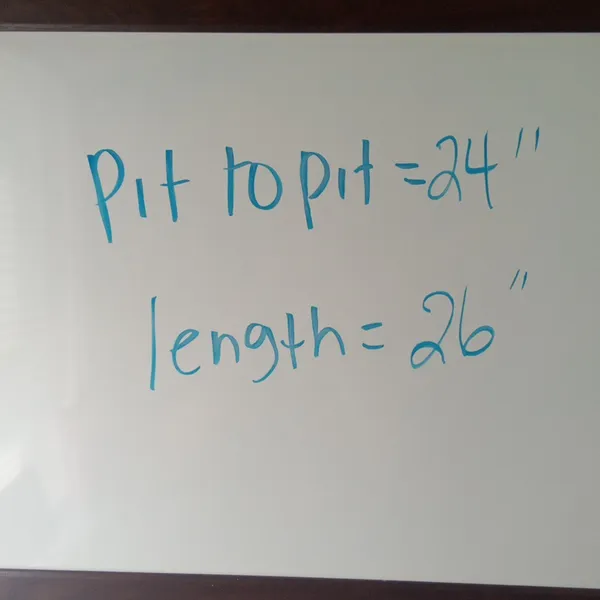 pit to pit = 24"
length = 26"